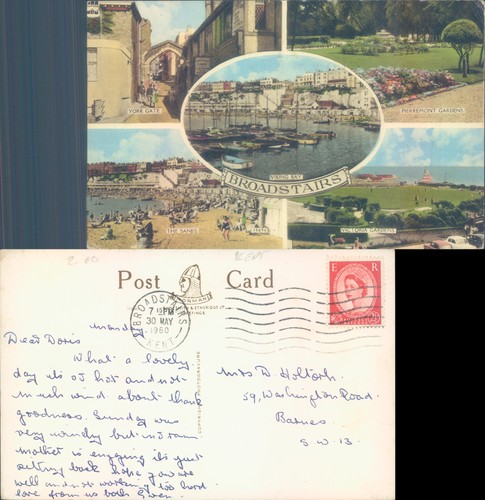 YORK GATE
PIERREMONT GARDENS
VIKING BAY
BROADSTAIRS
THE SANDS
VICTORIA GARDENS
2.00
KENT
Post Card
NORMAN
BROADSTAIRS
7 15PM
30 MAY
1960
KENT
E R
Monday
Dear Doris
What a lovely
day its so hot and not
much wind about thank
goodness. Sunday was
very windy but no rain
mother is enjoying it's just
sitting back hope you are
well and not working too hard
love from us both Gwen.
Mrs D. Holtorh
59, Washington Road
Barnes
S.W.13.